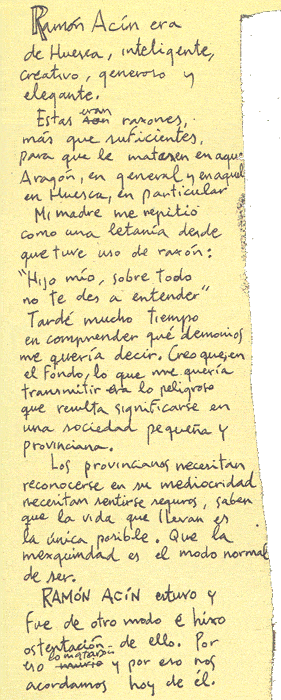 Ramón Acín era
de Huesca, inteligente,
creativo, generoso y
elegante.
Estas eran razones,
más que suficientes,
para que le matasen en aquel
Aragón, en general y en aquel
en Huesca, en particular
Mi madre me repitió
como una letanía desde
que tuve uso de razón:
"Hijo mío, sobre todo
no te des a entender"
Tardé mucho tiempo
en comprender qué demonios
me quería decir. Creo que, en
el fondo, lo que me quería
transmitir era lo peligroso
que resulta significarse en
una sociedad pequeña y
provinciana.
Los provincianos necesitan
reconocerse en su mediocridad
necesitan sentirse seguros, saben
que la vida que llevan es
la única posible. Que la
mezquindad es el modo normal
de ser.
RAMÓN ACÍN estuvo y
fue de otro modo e hizo
ostentación de ello. Por
eso lo mataron y por eso nos
acordamos hoy de él.